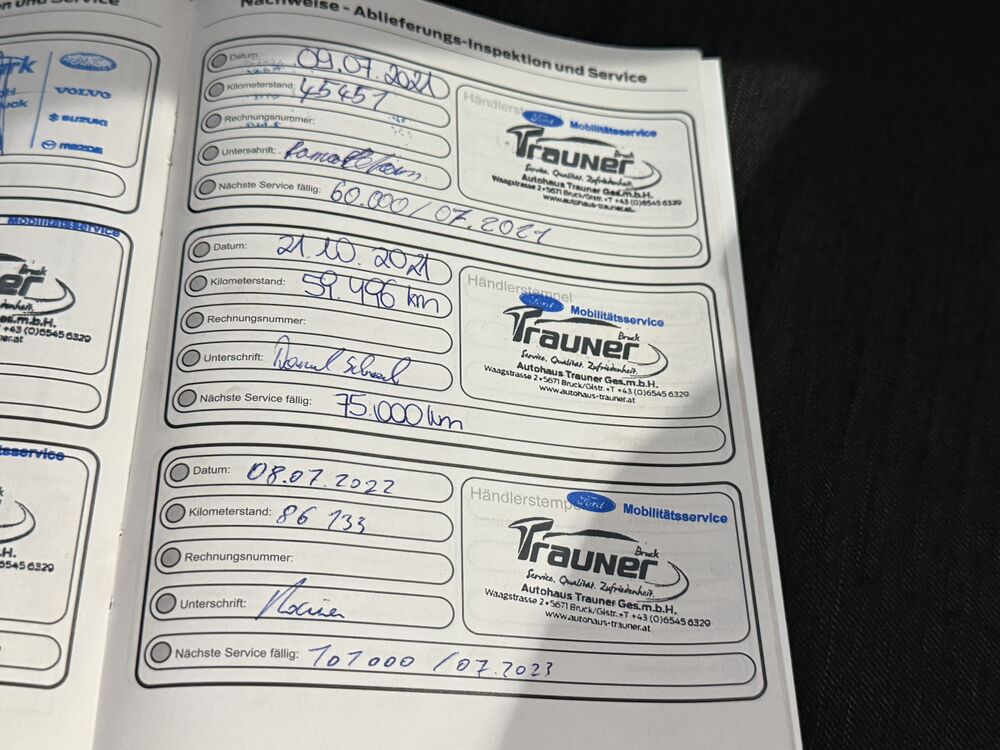 Nachweise - Ablieferungs-Inspektion und Service
Datum: 09.07.2021
Kilometerstand: 45451
Rechnungsnummer:
Unterschrift:
Nächste Service fällig: 60.000 / 07.2021
Ford Mobilitätsservice
Trauner Bruck
Service. Qualität. Zufriedenheit.
Autohaus Trauner Ges.m.b.H.
Waagstrasse 2 • 5671 Bruck/Glstr. • T +43 (0)6545 6329
www.autohaus-trauner.at
Datum: 21.10.2021
Kilometerstand: 59.496 km
Rechnungsnummer:
Unterschrift:
Nächste Service fällig: 75.000 km
Händlerstempel
Ford Mobilitätsservice
Trauner Bruck
Service. Qualität. Zufriedenheit.
Autohaus Trauner Ges.m.b.H.
Waagstrasse 2 • 5671 Bruck/Glstr. • T +43 (0)6545 6329
www.autohaus-trauner.at
Datum: 08.07.2022
Kilometerstand: 86 133
Rechnungsnummer:
Unterschrift:
Nächste Service fällig: 101000 / 07.2023
Ford Mobilitätsservice
Trauner Bruck
Service. Qualität. Zufriedenheit.
Autohaus Trauner Ges.m.b.H.
Waagstrasse 2 • 5671 Bruck/Glstr. • T +43 (0)6545 6329
www.autohaus-trauner.at
VOLVO
SUZUKI
mazda
Mobilitätsservice